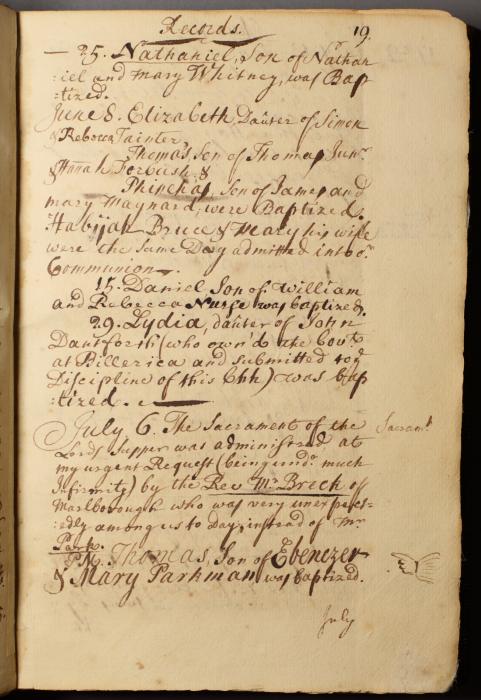 Records. 19.
— 25. Nathaniel, Son of Nathan
:iel and Mary Whitney, was Bap
:tized.
June 8. Elizabeth Dauter of Simon
& Rebecca Tainter
Thomas, Son of Thomas Junr.
& Hannah Forbush &
Phinehas, Son of James and
mary Maynard, were Baptized.
Habijah Bruce & Mary his wife
were the same Day admitted into or.
Communion.
15. Daniel Son of William
and Rebecca Nurse was baptized.
29. Lydia, dauter of John
Danforth (who own'd the Covt.
at Billerica and submitted to ye
Discipline of this Chh) was bap
:tized.
July 6. The Sacrament of the
Sacramt.
Lords Supper was administred at
my urgent Request (being undr. much
Infirmity) by the Rev Mr. Breck of
Marlborough who was very unexpect=
:edly among us to Day, instead of Mr
Park.
P.M. Thomas, Son of Ebenezer
& Mary Parkman was baptized.
July